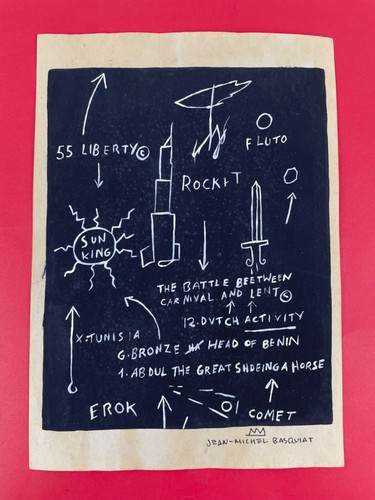 55 LIBERTY©
FLUTO
ROCKIT
SUN
KING
THE BATTLE BEETWEEN
CARNIVAL AND LENT©
12. DVTCH ACTIVITY
X. TUNISIA
G. BRONZE HEAD OF BENIN
1. ABDUL THE GREAT SHOEING A HORSE
EROK
COMET
JEAN-MICHEL BASQUIAT